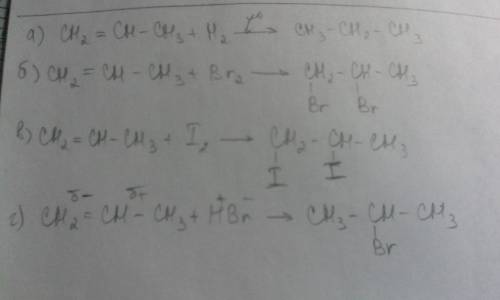 а) CH₂ = CH – CH₃ + H₂ →t° CH₃ – CH₂ – CH₃
б) CH₂ = CH – CH₃ + Br₂ → CH₂ – CH – CH₃
Br Br
в) CH₂ = CH – CH₃ + I₂ → CH₂ – CH – CH₃
I I
δ– δ+ + –
г) CH₂ = CH – CH₃ + HBr → CH₃ – CH – CH₃
Br